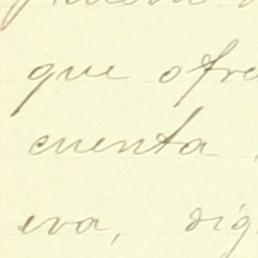 que ofre
cuenta
eva, dig